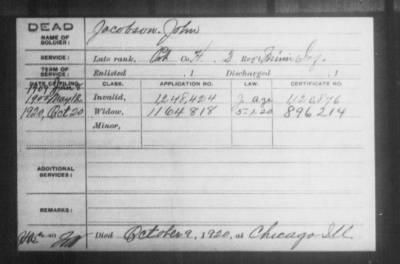 DEAD
NAME OF SOLDIER: Jacobson, John
SERVICE: Late rank, Co. H, Reg't
TERM OF SERVICE: Enlisted , 1 Discharged , 1
DATE OF FILING. CLASS. APPLICATION NO. LAW. CERTIFICATE NO.
Invalid, 1248,424 1126876
1920, Oct 20 Widow, 1164818 5-1-20 896214
Minor,
ADDITIONAL SERVICES:
REMARKS:
Died October 9, 1920, at Chicago Ill